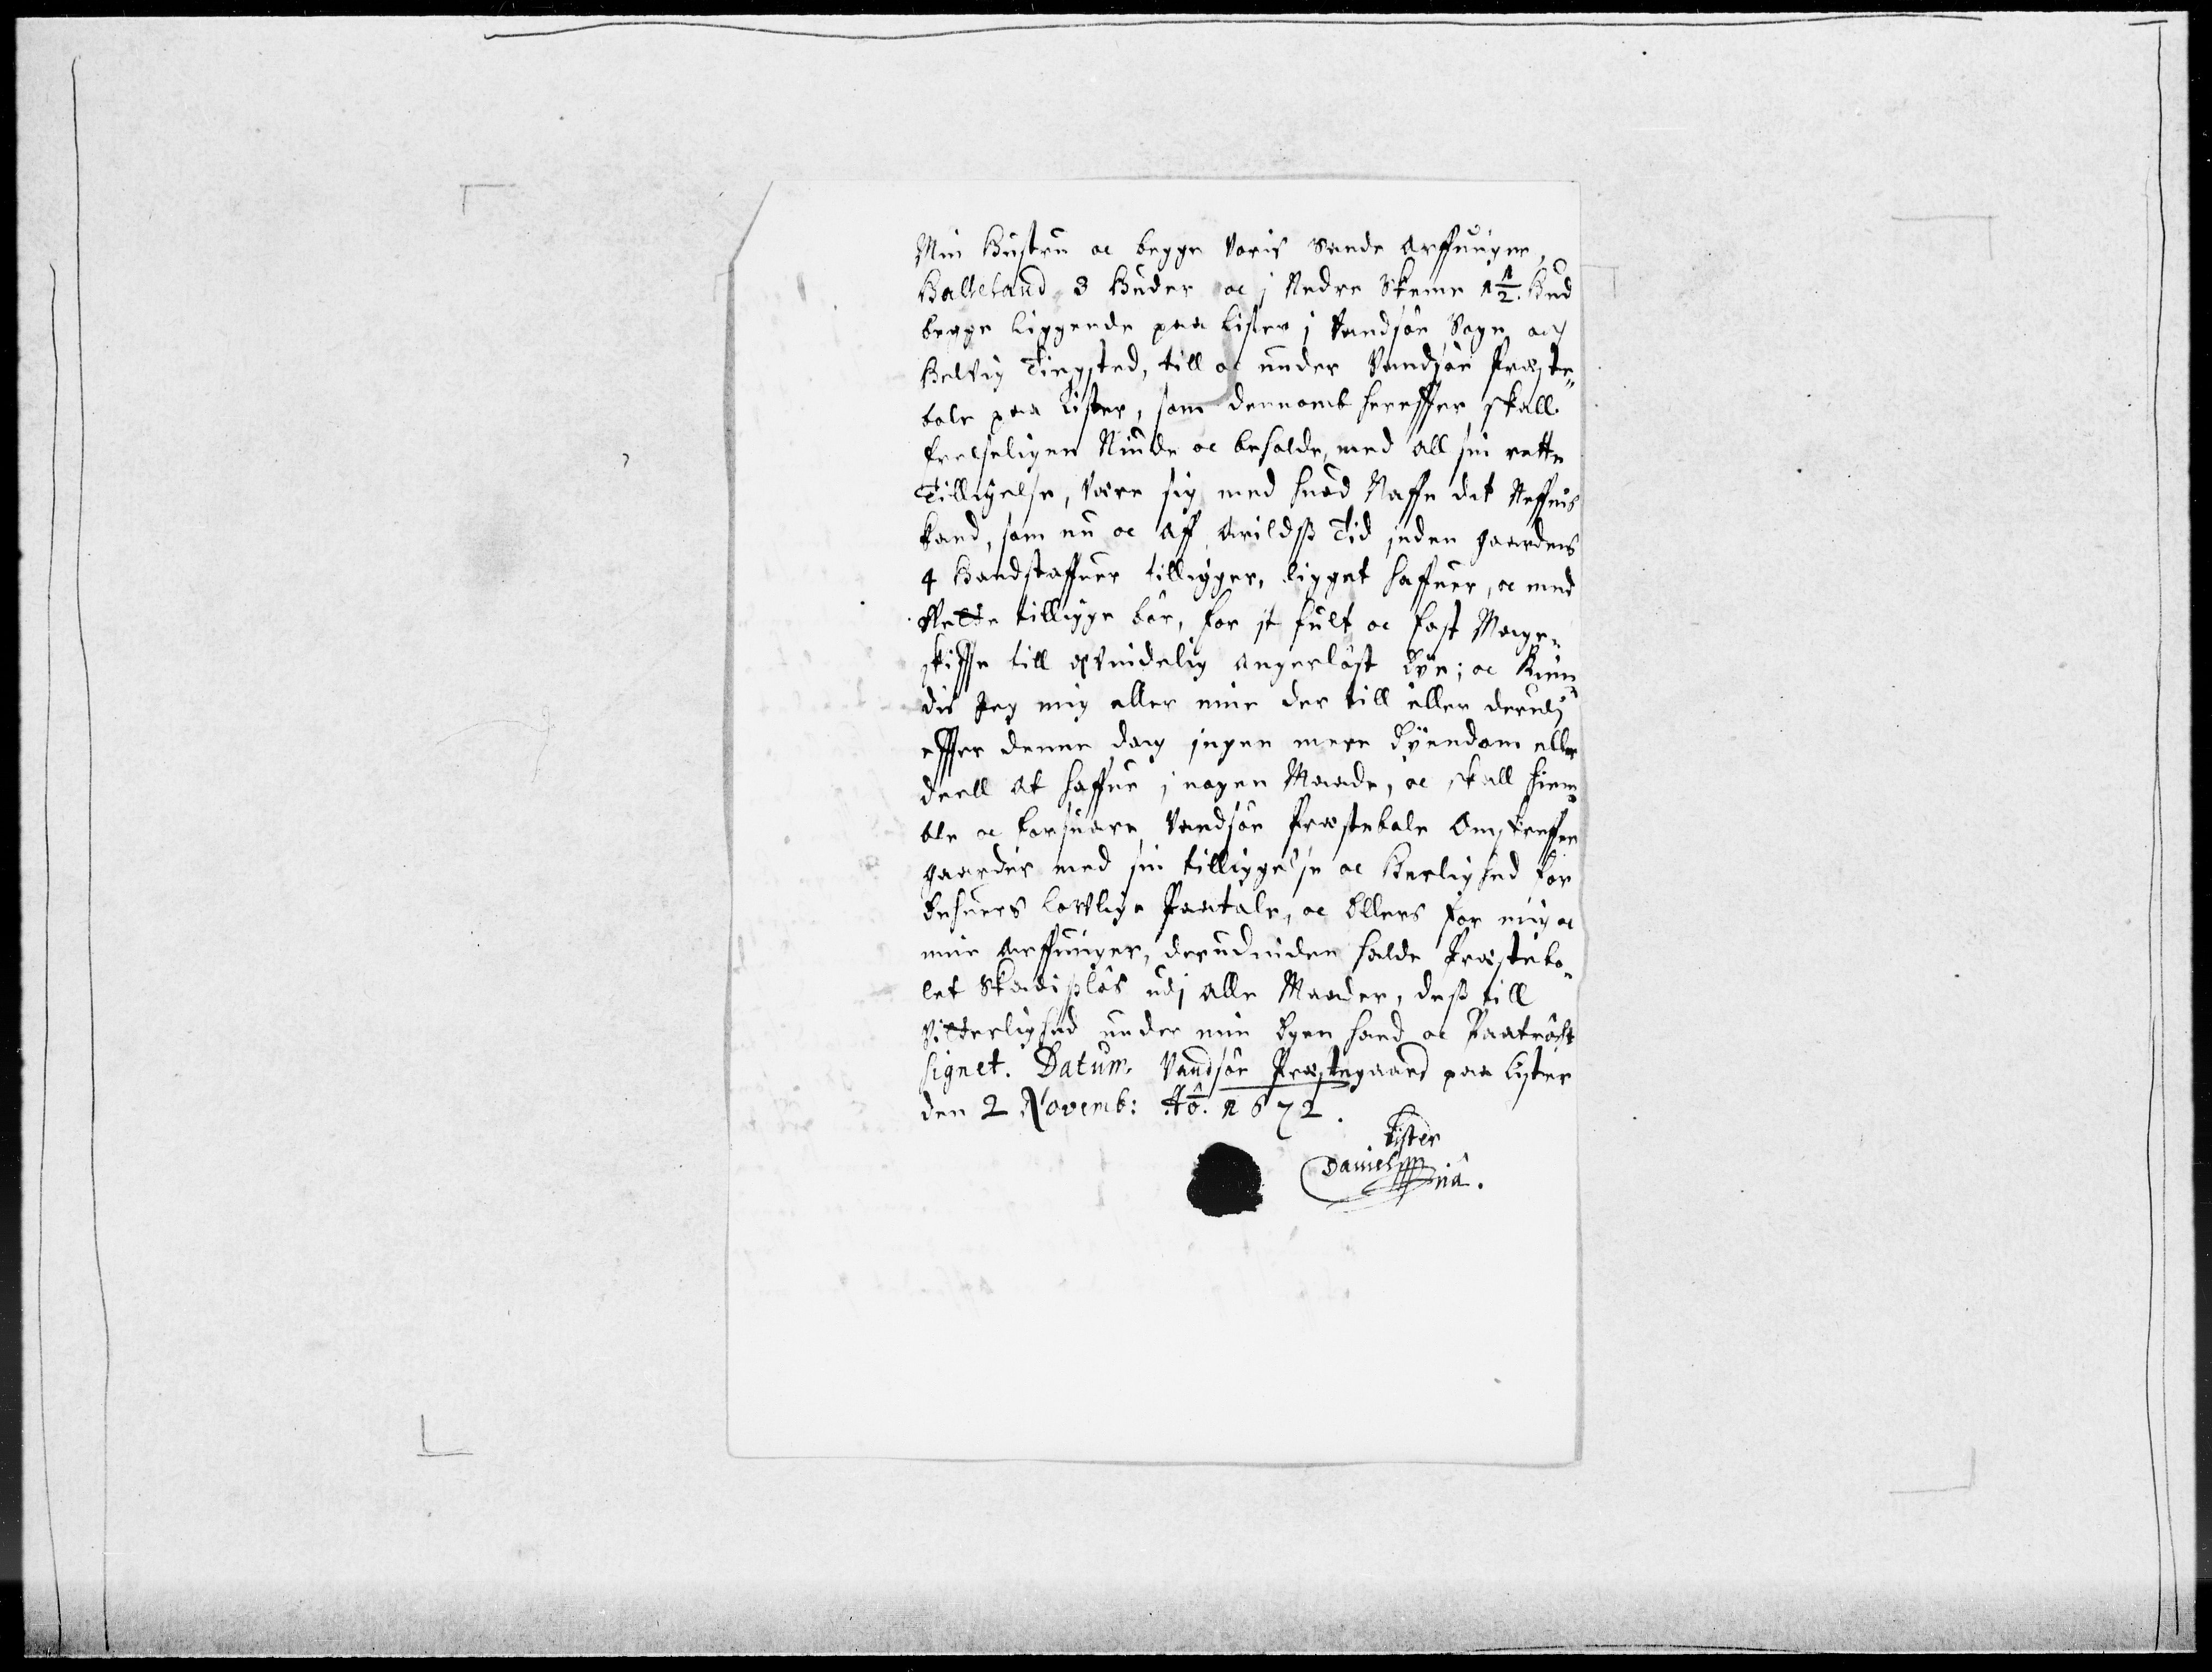 Min Hustru oc begge voris Sande Arffuinger,
Halleland 3 Huder oc j Nedre Skeime 1 1/2. Hud
begge liggende paa Lister j Vandsøe Sogn och
Helvig Tingsted, till oc under Vandsøe Præste„
bole paa Lister, som dennomb hereffter skall
frelseligen Niude oc beholde, med all sin rette
Tilligelse, være sig med huad Naffn det Neffnis
kand, som nu oc aff Arildß Tid inden gaardens
4 Handstaffuer tilligger, ligget haffuer, oc med
Rette tilligge bør, for it fult oc fast Mage„
skiffte till euindelig angerløst Eye; oc Kien„
dis Jeg mig eller mine der till eller derudj
effter denne dag ingen mere Eyendom eller
deell at haffue j nogen Maade, oc skall hiem„
ble oc forsuare Vandsøe Præstebole Omskreffne
gaarder med sin tilliggelse oc Herlighed for
Enhuers lowlige Paatale, oc Ellers for mig oc
mine Arffuinger, derudinden holde Præstebo„
let Skadisløs udj alle Maader, deß till
Vitterlighed under min Egen haand oc Paatrøckt
Signet. Datum. Vandsøe Præstegaard paa Lister
den 2 Novemb: Aō. 1672.
Lister
Daniels